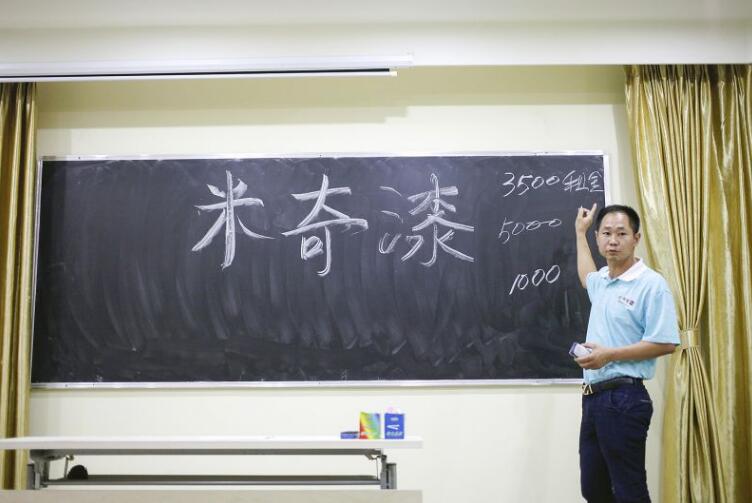 米奇漆
3500租金
5000
1000